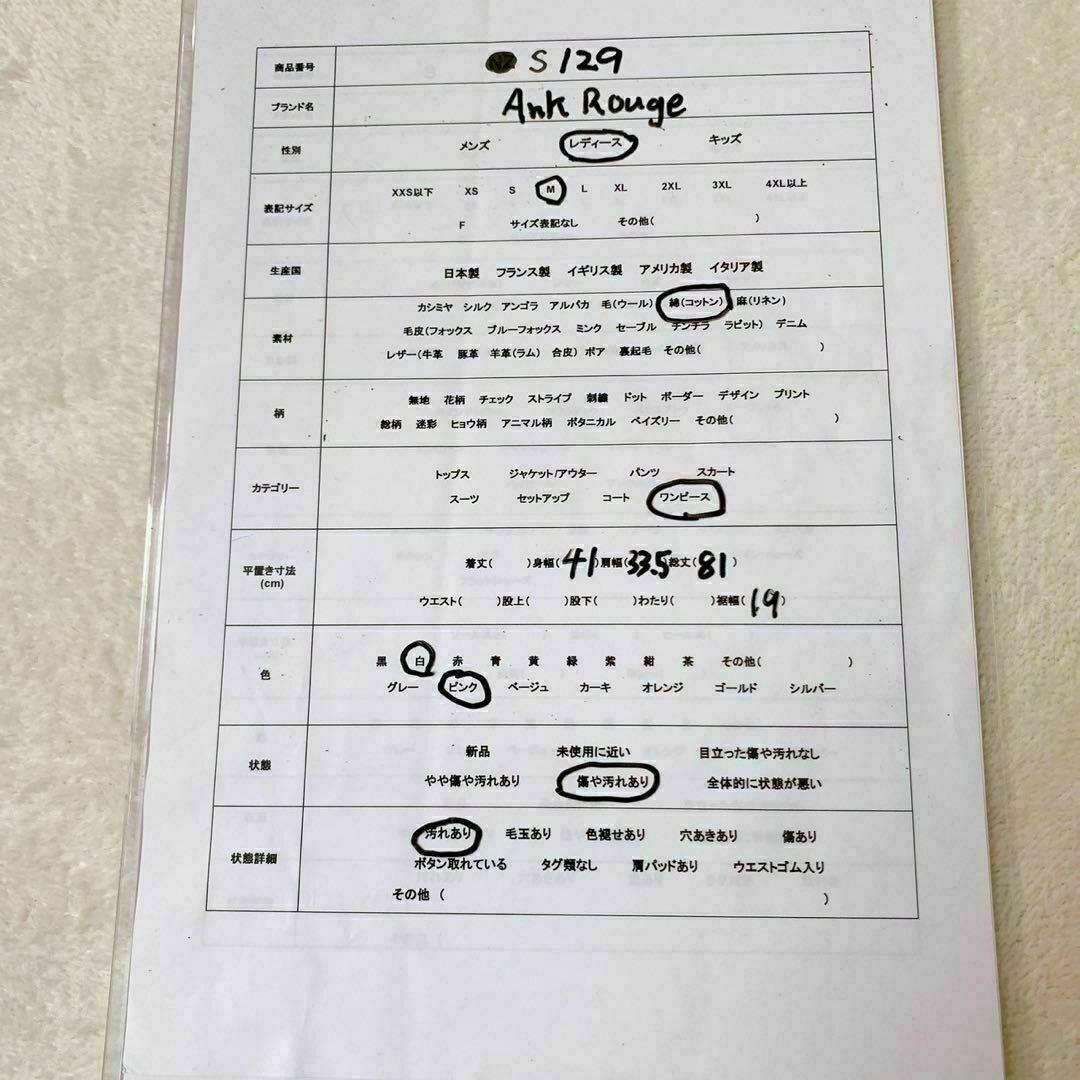 商品番号 S 129
ブランド名 Ank Rouge
性別 メンズ レディース キッズ
表記サイズ XXS以下 XS S M L XL 2XL 3XL 4XL以上
F サイズ表記なし その他( )
生産国 日本製 フランス製 イギリス製 アメリカ製 イタリア製
素材 カシミヤ シルク アンゴラ アルパカ 毛(ウール) 綿(コットン) 麻(リネン)
毛皮(フォックス ブルーフォックス ミンク セーブル チンチラ ラビット) デニム
レザー(牛革 豚革 羊革(ラム) 合皮) ボア 裏起毛 その他( )
柄 無地 花柄 チェック ストライプ 刺繍 ドット ボーダー デザイン プリント
総柄 迷彩 ヒョウ柄 アニマル柄 ボタニカル ペイズリー その他( )
カテゴリー トップス ジャケット/アウター パンツ スカート
スーツ セットアップ コート ワンピース
平置き寸法 (cm) 着丈( )身幅( 41 )肩幅( 33.5 )総丈( 81 )
ウエスト( )股上( )股下( )わたり( )裾幅( 19 )
色 黒 白 赤 青 黄 緑 紫 紺 茶 その他( )
グレー ピンク ベージュ カーキ オレンジ ゴールド シルバー
状態 新品 未使用に近い 目立った傷や汚れなし
やや傷や汚れあり 傷や汚れあり 全体的に状態が悪い
状態詳細 汚れあり 毛玉あり 色褪せあり 穴あきあり 傷あり
ボタン取れている タグ類なし 肩パッドあり ウエストゴム入り
その他 ( )